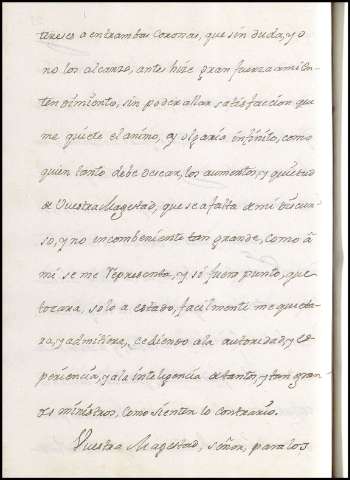 tereses a entrambas Coronas, que sin duda, y o
no los alcanzo, antes hize gran fuerza a mi En-
tendimiento, sin poder allar satisfaccion que
me quiete el animo, y olgaria infinito, como
quien tanto debe desear, los aumentos, y quietud
de Vuestra Magestad, que sea falta de mi discur-
so, y no incombeniente tan grande, como â
mi se me representa, y si fuera punto, que
tocara, solo a estado, facilmente me quieta-
ra, y admitiera, cediendo ala autoridad, y es-
periencia, y ala inteligencia de tantos, y tan gran-
des ministros, como sienten lo contrario.
Vuestra Magestad, señor, para los